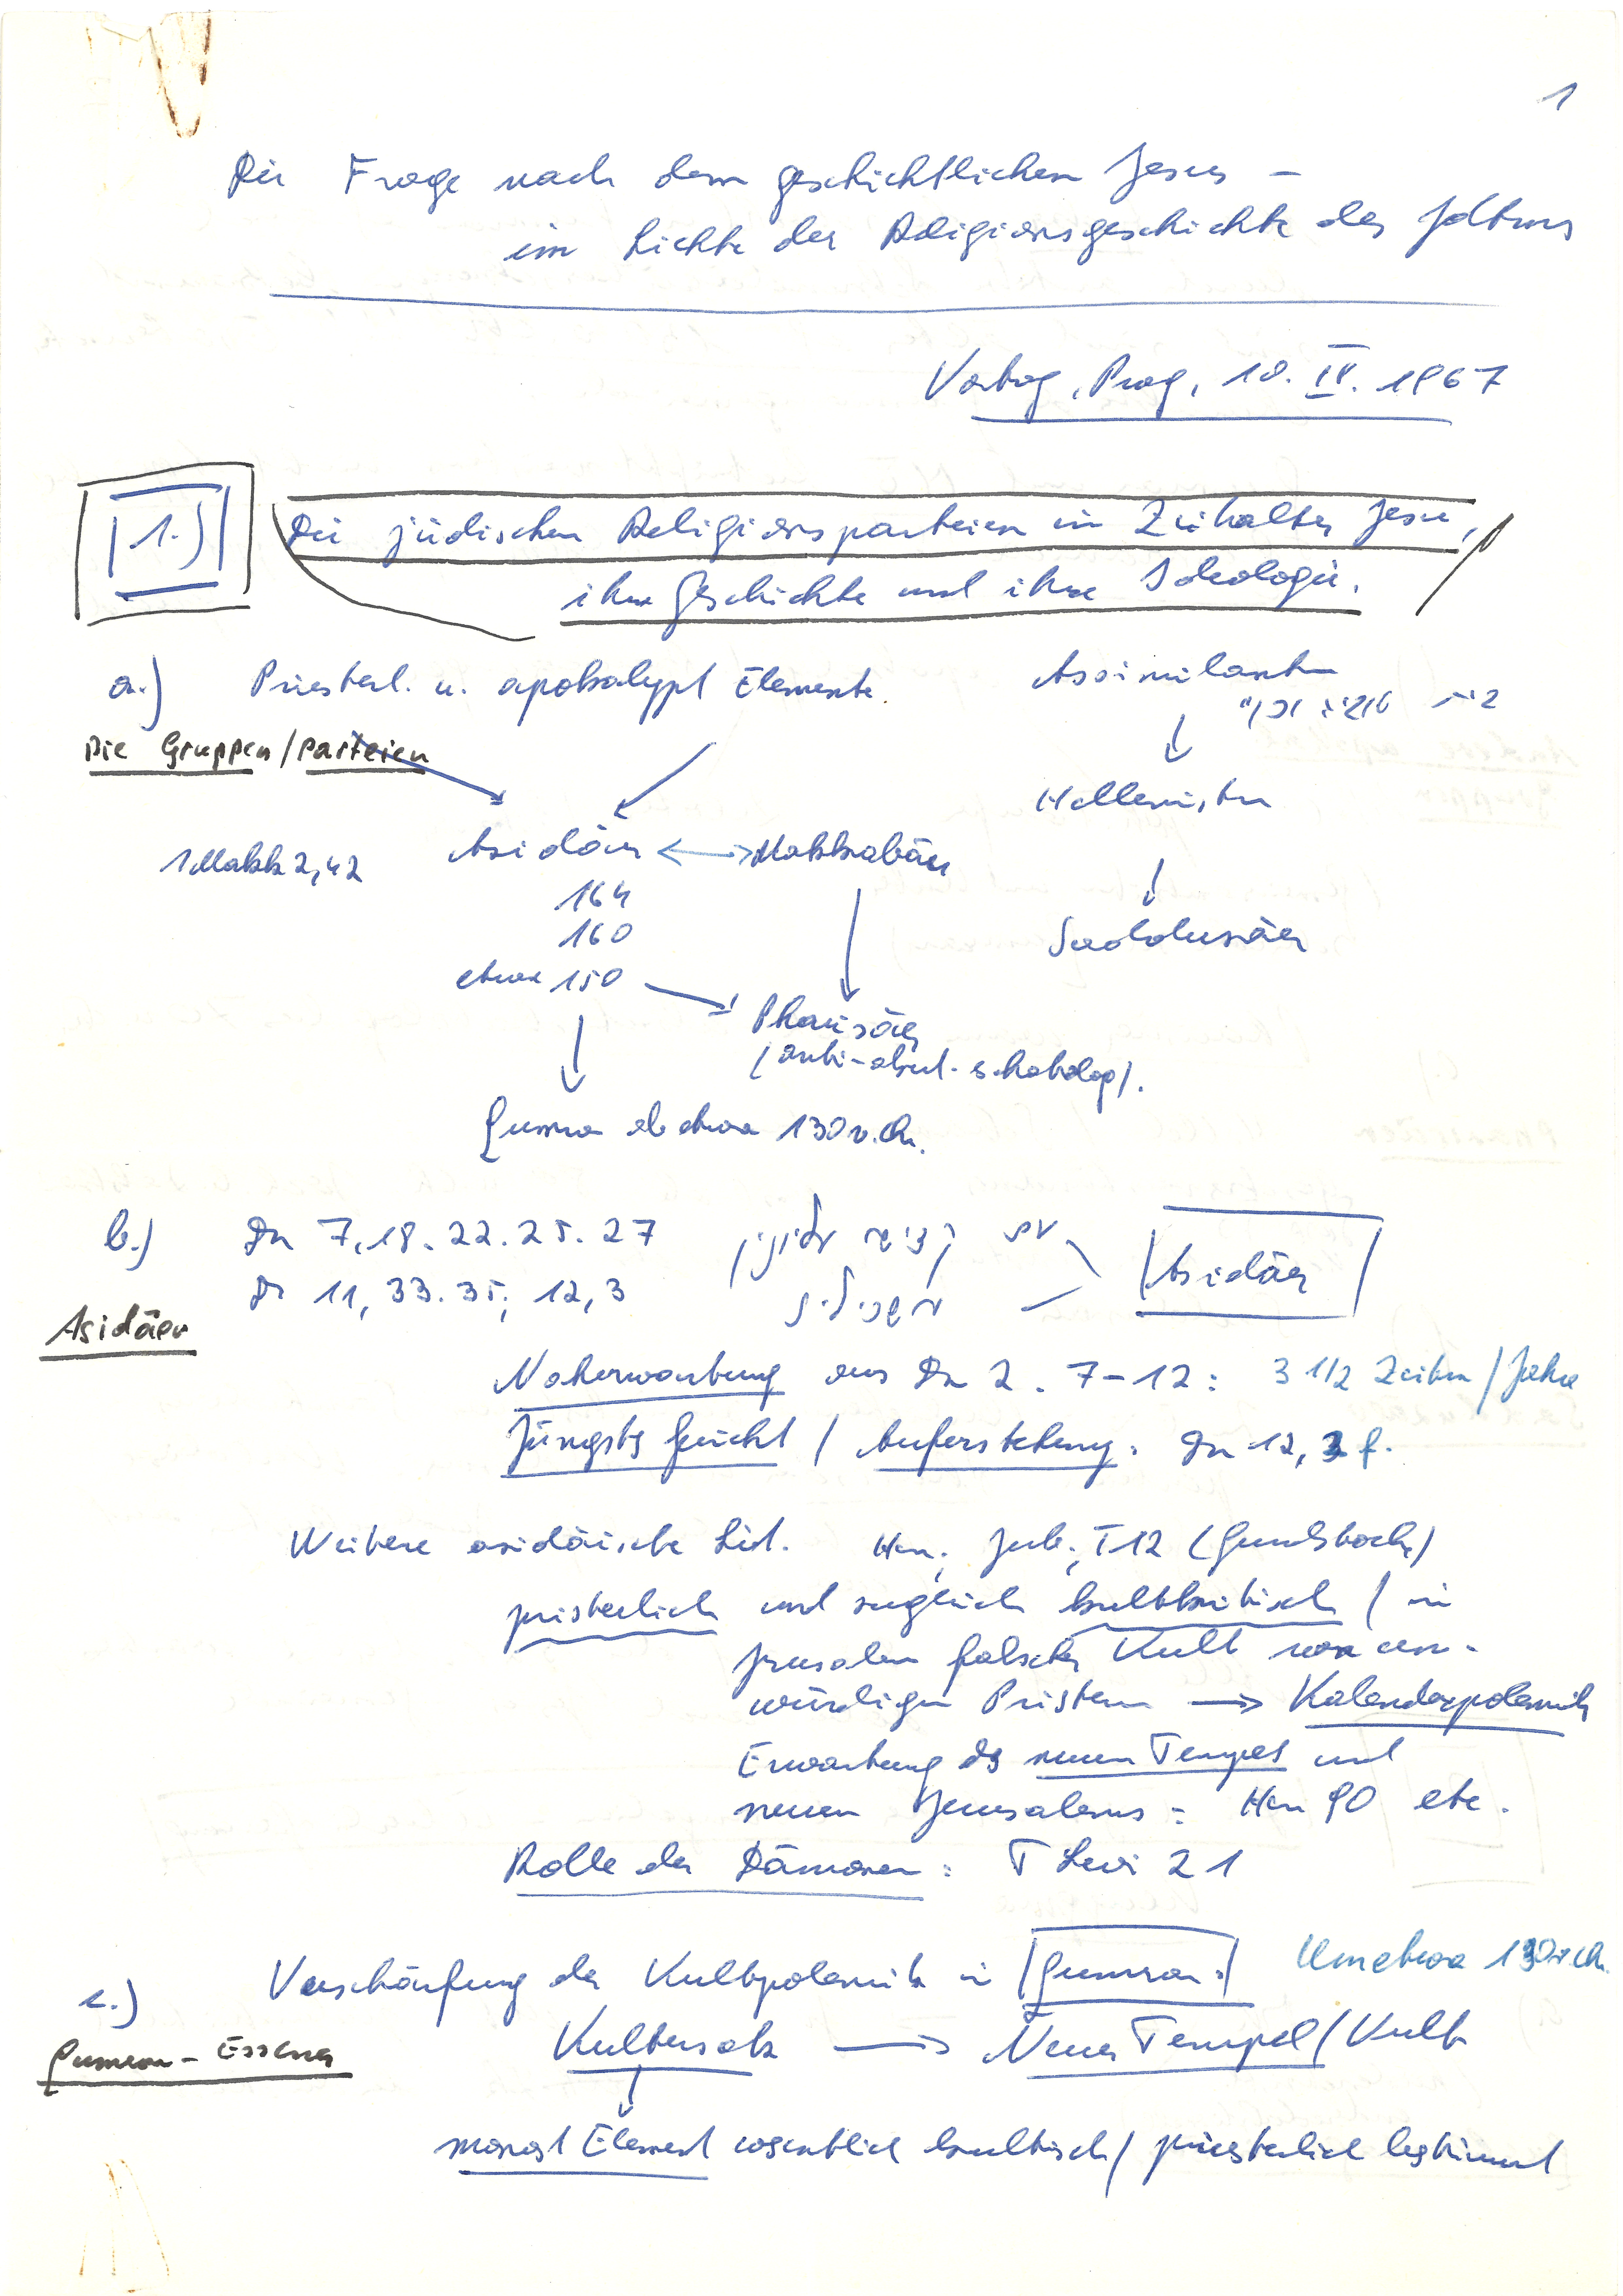 1
Die Frage nach dem geschichtlichen Jesus –
im Lichte der Religionsgeschichte des Jdtums
Vortrag, Prag, 10. IV. 1967
1.) Die jüdischen Religionsparteien im Zeitalter Jesu,
ihre Geschichte und ihre Ideologie.
a.) Priesterl. u. apokalypt Elemente. Assimilanten
Die Gruppen/Parteien
Hellenisten
1 Makk 2,42 Asidäer <—> Makkabäer
164
160 Sadduzäer
etwa 150
Pharisäer
(anti-absol. eschatolog).
Qumran ab etwa 130 v. Chr.
b.) Dn 7,18. 22. 25. 27 עם קדישי עליונין
Dn 11, 33. 35; 12,3 משכילים Asidäer
Asidäer
Naherwartung aus Dn 2. 7–12: 3 1/2 Zeiten/Jahre
Jüngstes Gericht / Auferstehung: Dn 12, 2 f.
Weitere asidäische Lit. Hen; Jub; T12 (Grundstock)
priesterlich und zugleich kultkritisch / in
Jerusalem falscher Kult von un-
würdigen Priestern —> Kalenderpolemik
Erwartung des neuen Tempels und
neuen Jerusalems: Hen 90 etc.
Rolle der Dämonen: T Levi 21
c.) Verschärfung der Kultpolemik in Qumran: Um etwa 130 v. Chr.
Kultersatz —> Neuer Tempel/Kult
Qumran-Essener
monast Element wesentlich kultisch/priesterlich bestimmt